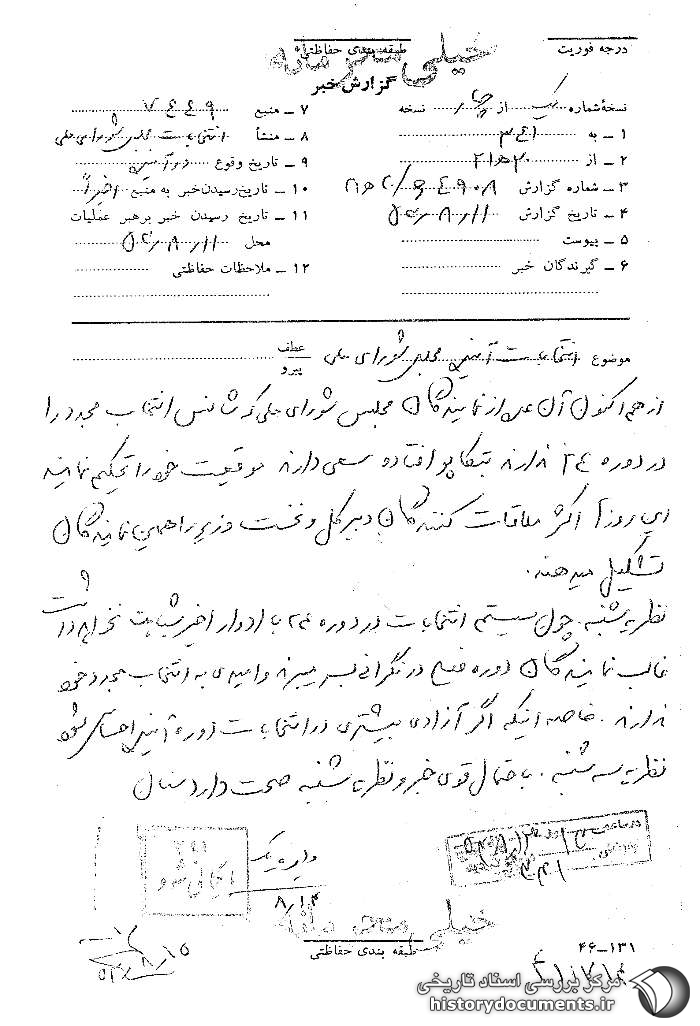 درجه فوریت
طبقه بندی حفاظتی
خیلی محرمانه
گزارش خبر
نسخه شماره یک از چهار نسخه
۱ ـ به ۳۴۱
۲ ـ از ۲۱ه۲۰
۳ ـ شماره گزارش
۴ ـ تاریخ گزارش ۵۲٫۸٫۱۱
۵ ـ پیوست
۶ ـ گیرندگان خبر
۷ ـ منبع ۷۴۴۹
۸ ـ منشأ انتخابات مجلس شورای ملی
۹ ـ تاریخ وقوع در آینده
۱۰ ـ تاریخ رسیدن خبر به منبع اخیراً
۱۱ ـ تاریخ رسیدن خبر برهبر عملیات
محل ۵۲٫۸٫۱۱
۱۲ ـ ملاحظات حفاظتی
موضوع انتخابات آینده مجلس شورای ملی
عطف
پیرو
از هم اکنون آن عده از نمایندگان مجلس شورای ملی که شانس انتخاب مجدد را
در دوره ۲۴ ندارند بتکاپو افتاده و سعی دارند موقعیت خود را تحکیم نمایند
این روزها اکثر ملاقات کنندگان دبیر کل و نخست وزیر را همین نمایندگان
تشکیل میدهند.
نظریه شنبه. چون سیستم انتخابات در دوره ۲۴ با ادوار اخیر شباهت نخواهد داشت
غالب نمایندگان دوره فعلی در نگرانی بسر میبرند و امیدی به انتخاب مجدد خود
ندارند. خاصه اینکه اگر آزادی بیشتری در انتخابات دوره آینده احساس شود
نظریه سه شنبه. باحتمال قوی خبر و نظریه شنبه صحت دارد
بایگانی شود
۸/۱۴
۳۴۱
خیلی محرمانه
طبقه بندی حفاظتی
۴۶-۱۳۱
مرکز بررسی اسناد تاریخی
historydocuments.ir